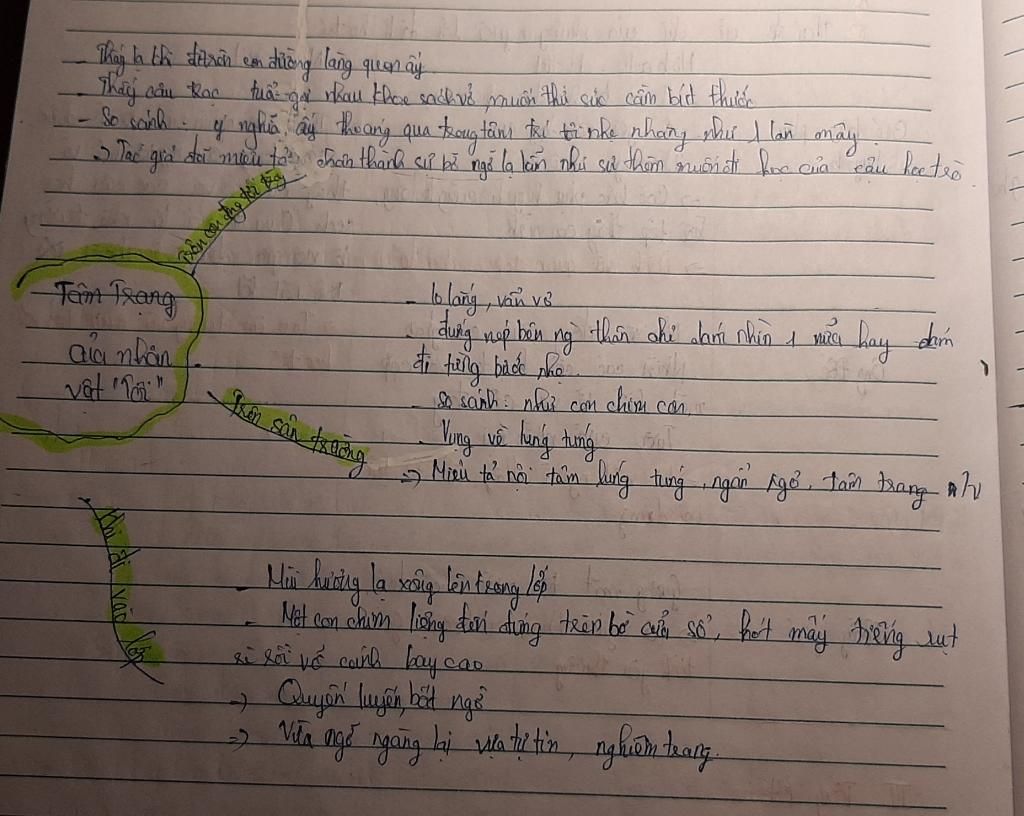 - Thấy lạ khi đi trên con đường làng quen ấy
- Thấy cậu trạc tuổi gọi nhau khoe sách vở, muốn thử sức cầm bút thước
- So sánh: ý nghĩa ấy thoáng qua trong tâm trí tôi nhẹ nhàng như 1 làn mây
-> Tác giả đã miêu tả chân thành sự bỡ ngỡ lạ lẫm như sự thèm muốn đi học của cậu học trò.
Trên con đng tới trg
Tâm Trạng
của nhân
vật "Tôi"
- lo lắng, vẩn vơ
- đứng nép bên ng thân chỉ dám nhìn 1 nửa hay dám
đi từng bước nhẹ.
- So sánh: như con chim con
Trên sân trường
- Vụng về lúng túng
=> Miêu tả nội tâm lúng túng, ngẩn ngơ, tâm trạng n/v
Khi đi vào lớp
- Mùi hương lạ xông lên trong lớp
- Một con chim liệng đến đứng trên bờ cửa sổ, hót mấy tiếng rụt
rè rồi vỗ cánh bay cao
-> Quyến luyến, bất ngờ
=> Vừa ngỡ ngàng lại vừa tự tin, nghiêm trang.